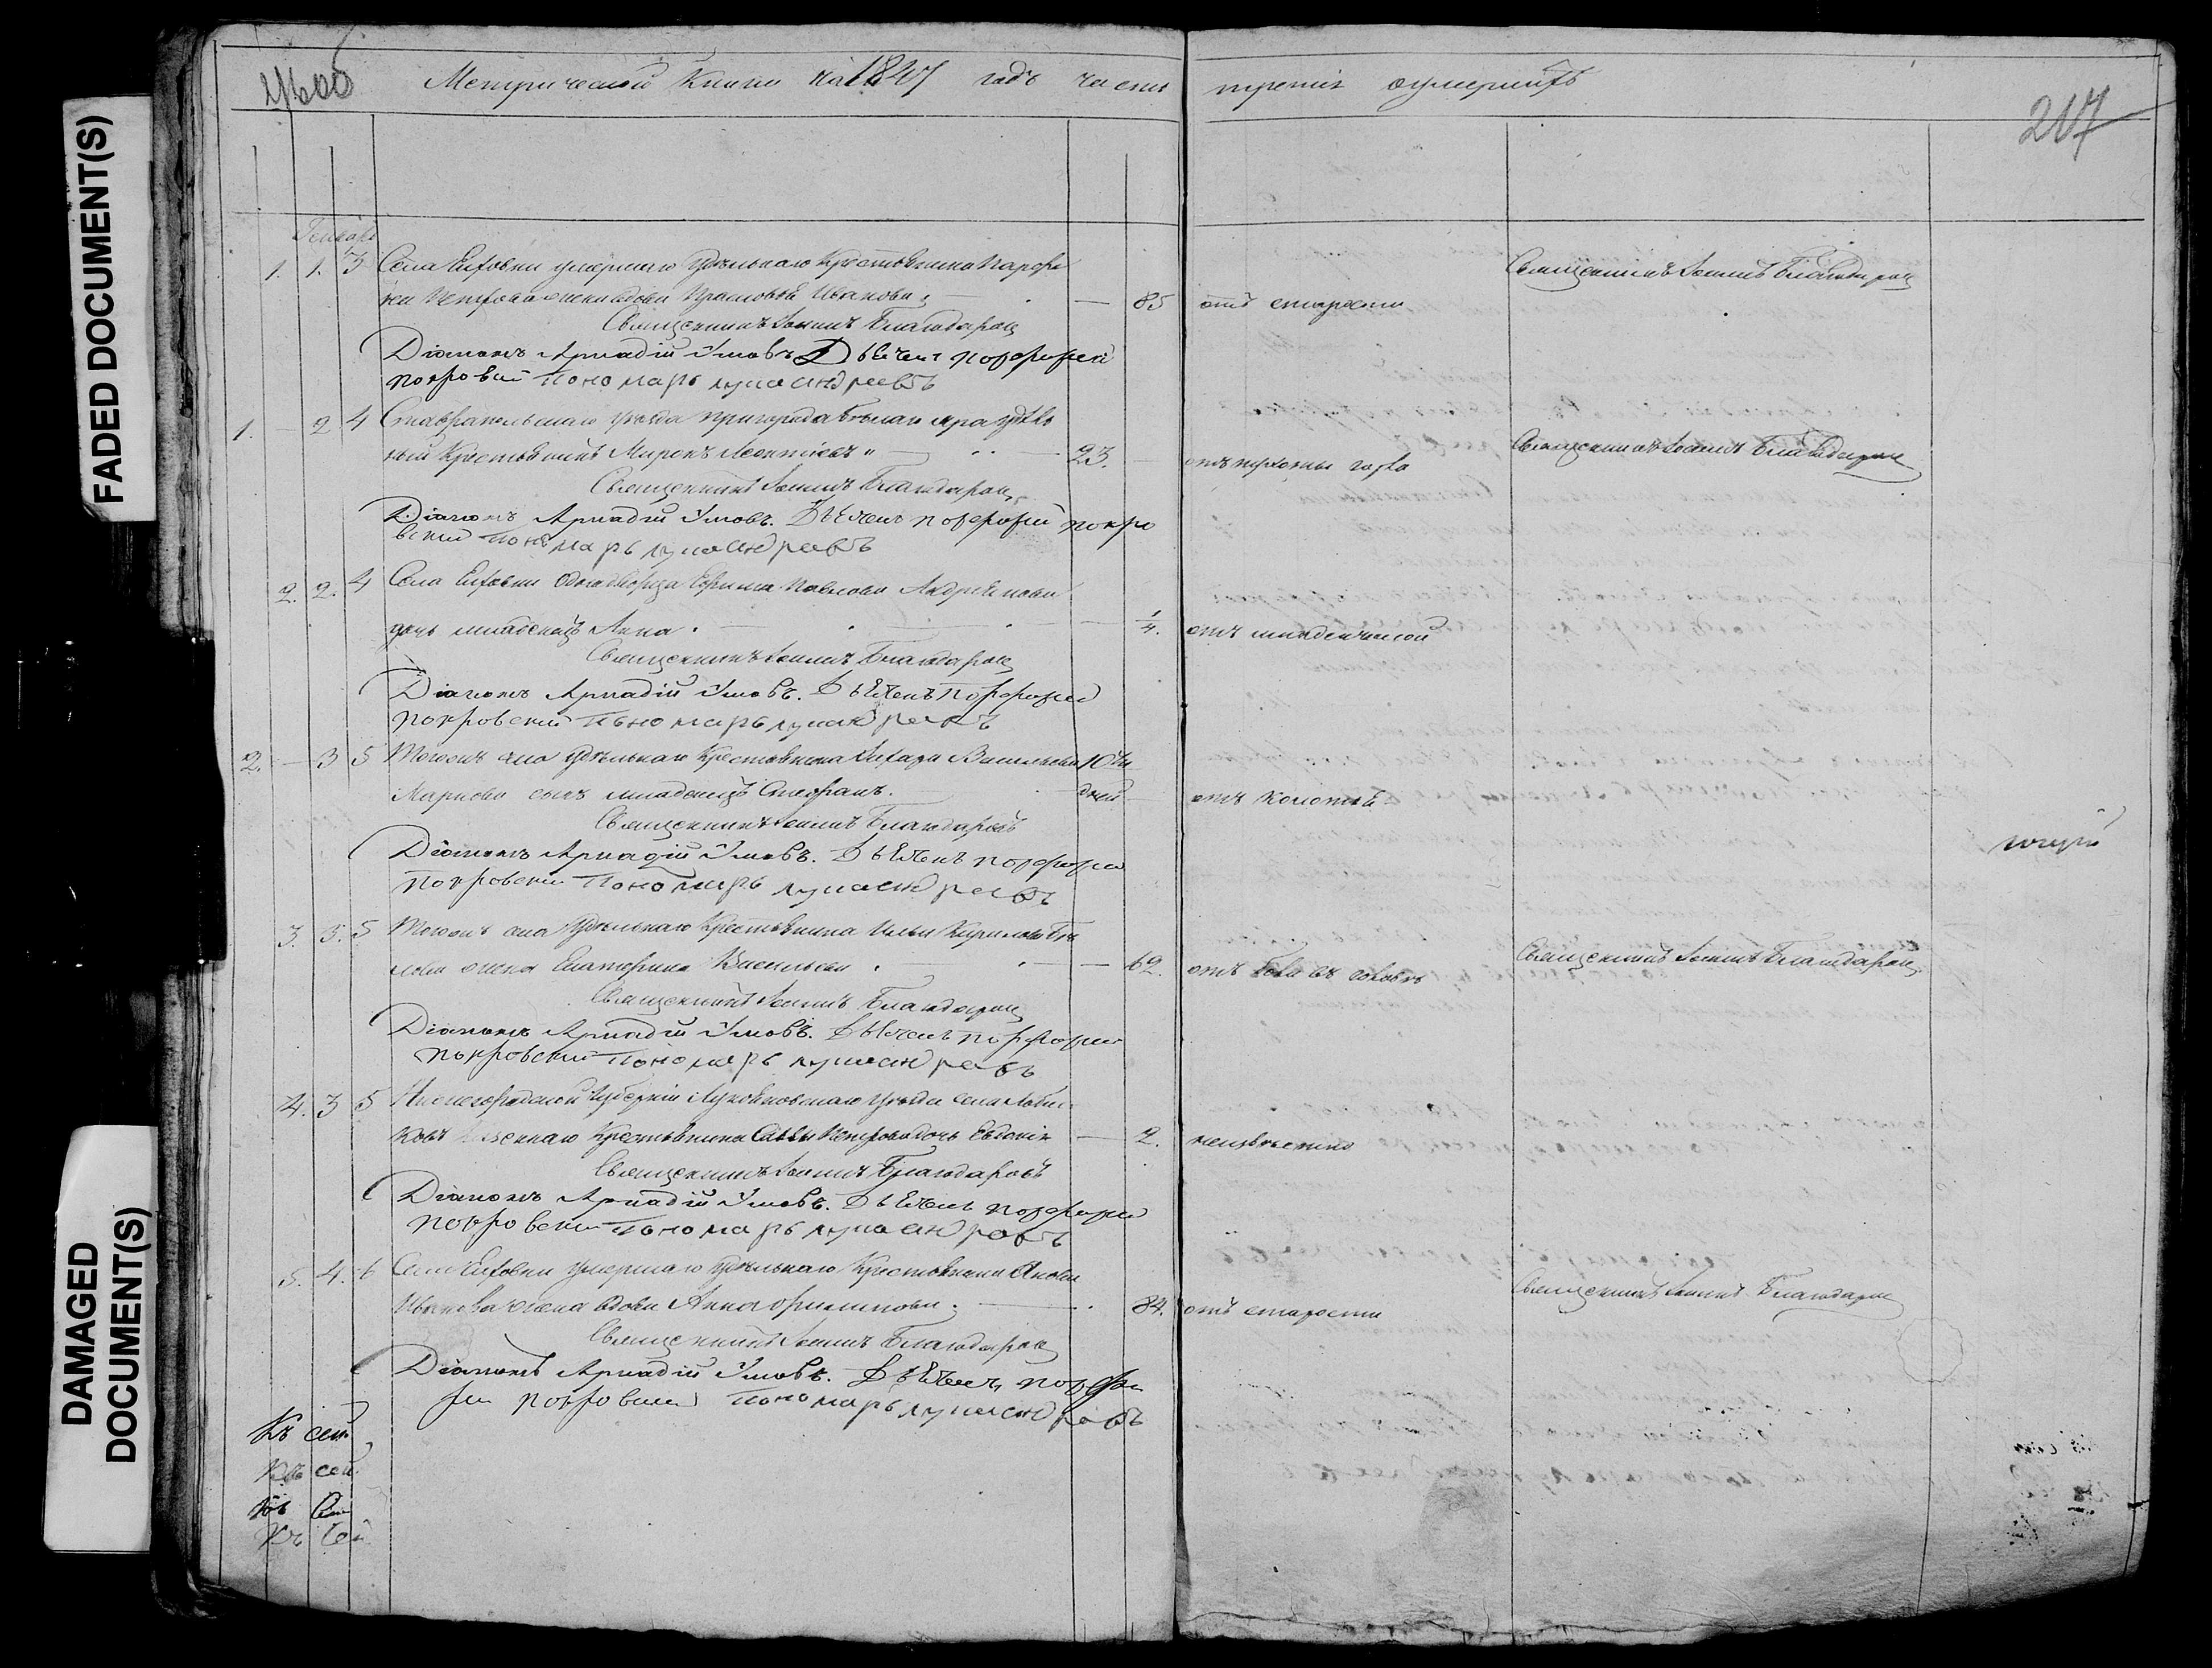 FADED DOCUMENT(S)
DAMAGED DOCUMENT(S)
Метрической Книги на 1847 годъ части третія о умершихъ
217
Генварь
1. 1. 3 Села Елховки умершаго Удѣльнаго Крестьянина
Петрова жена вдова Иванова 85 отъ старости
Священникъ Іоаннъ Благодаровъ
Священникъ Іоаннъ Благодаровъ
Діаконъ Аркадій Умовъ Дьячекъ Порфирій
Покровскій Пономарь
1. 2 4 Ставропольскаго уѣзда пригорода Бѣлаго Яра удѣль
ный Крестьянинъ Миронъ Леонтіевъ 23. отъ
Священникъ Іоаннъ Благодаровъ
Священникъ Іоаннъ Благодаровъ
Діаконъ Аркадій Умовъ. Дьячекъ Порфирій Покро
вскій Пономарь
2. 2. 4 Села Елховки Однодворца Ефима Павлова
дочь младенецъ Анна 1/4. отъ младенческой
Священникъ Іоаннъ Благодаровъ
Діаконъ Аркадій Умовъ. Дьячекъ Порфирій
Покровскій Пономарь
2. 3 5 Тогожъ села Удѣльнаго Крестьянина Захара Васильева 10ти
Маркова сынъ младенецъ Стефанъ. дней
Священникъ Іоаннъ Благодаровъ
Діаконъ Аркадій Умовъ. Дьячекъ Порфирій
Покровскій Пономарь
3. 3. 5 Тогожъ села Удѣльнаго Крестьянина Ильи Кирилова Бѣ
лова жена Екатерина Васильева 62. отъ боли въ головѣ
Священникъ Іоаннъ Благодаровъ
Священникъ Іоаннъ Благодаровъ
Діаконъ Аркадій Умовъ. Дьячекъ Порфирій
Покровскій Пономарь
4. 3 5 Нижегородской Губерніи Лукояновскаго уѣзда села
Казеннаго Крестьянина Саввы Петрова дочь Евдокія 2. неизвѣстно
Священникъ Іоаннъ Благодаровъ
Діаконъ Аркадій Умовъ. Дьячекъ Порфирій
Покровскій Пономарь
5. 4. 6 Села Елховки умершаго удѣльнаго Крестьянина Якова
Иванова жена вдова Анна Филипова 84. отъ старости
Священникъ Іоаннъ Благодаровъ
Священникъ Іоаннъ Благодаровъ
Діаконъ Аркадій Умовъ. Дьячекъ Порфи
рій Покровскій Пономарь
Къ сей
Къ сей
Къ сей
Къ сей